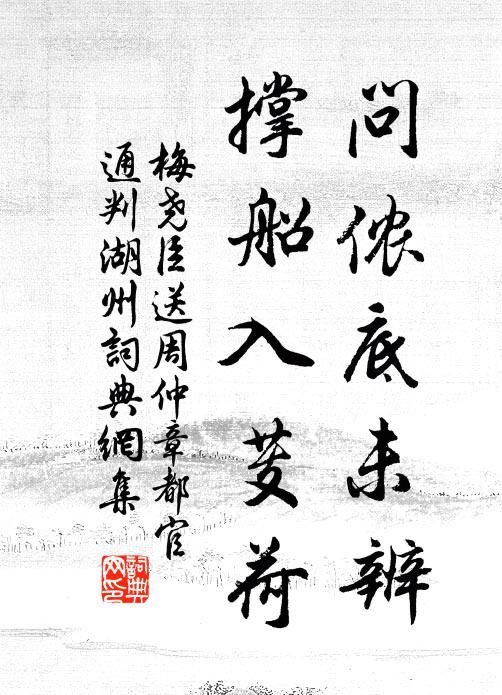 问侬底未辨
撑船入芰荷
梅尧臣送周仲章都官
通判湖州詞典網集
詞典
网印